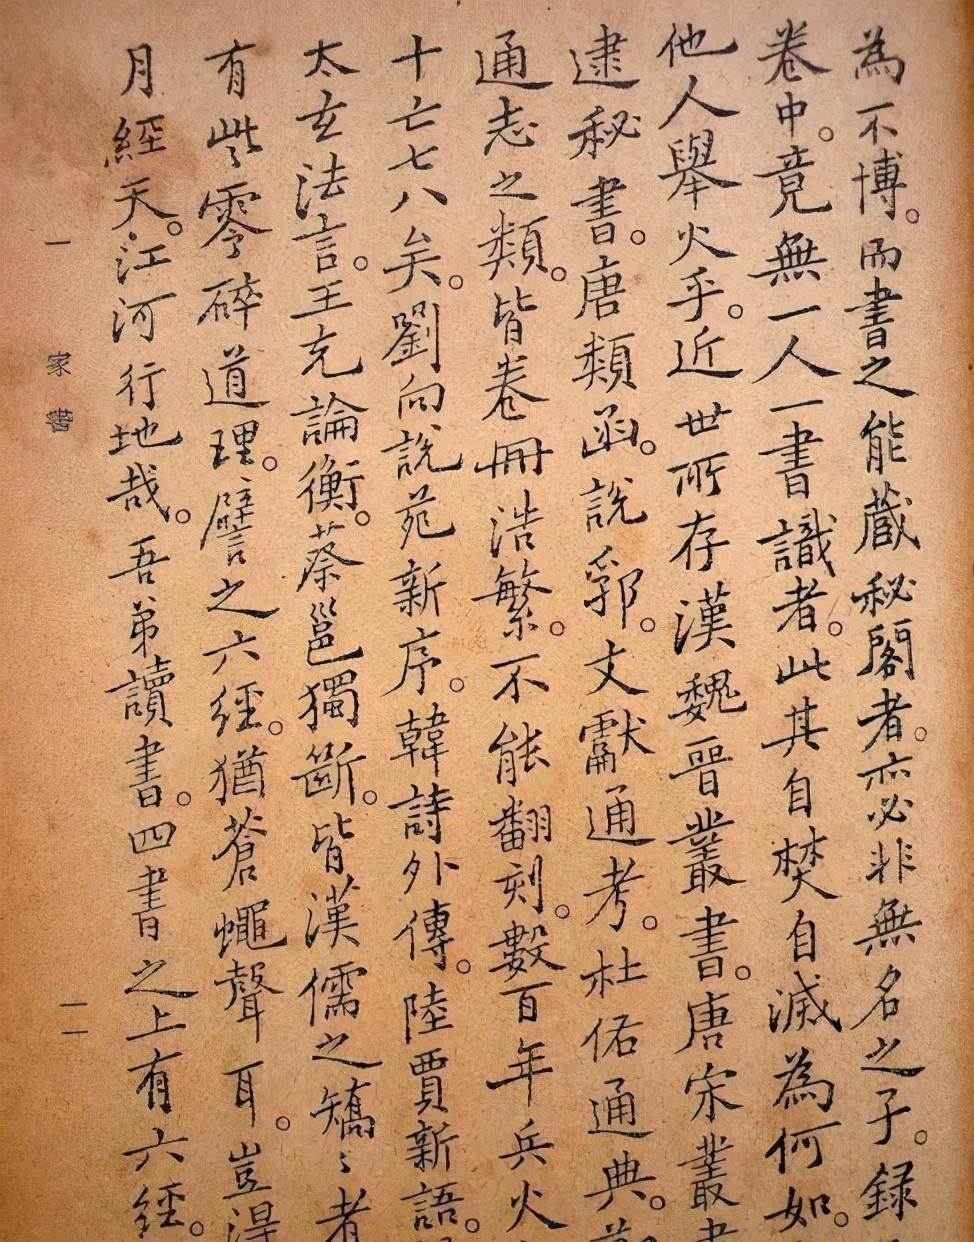 為不博。而書之能藏秘閣者。亦必非無名之子。録
卷中。竟無一人一書識者。此其自焚自滅為何如。
他人舉火乎。近世所存漢魏晉叢書。唐宋叢書
逮秘書。唐類函。說郛。文獻通考。杜佑通典。鄭
通志之類。皆卷冊浩繁。不能翻刻。數百年兵火
十亡七八矣。劉向說苑新序。韓詩外傳。陸賈新語。
太玄法言。王充論衡。蔡邕獨斷。皆漢儒之矯〻者
有些零碎道理。譬之六經。猶蒼蠅聲耳。豈得
月經天。江河行地哉。吾弟讀書。四書之上有六經。
一 家書 一一